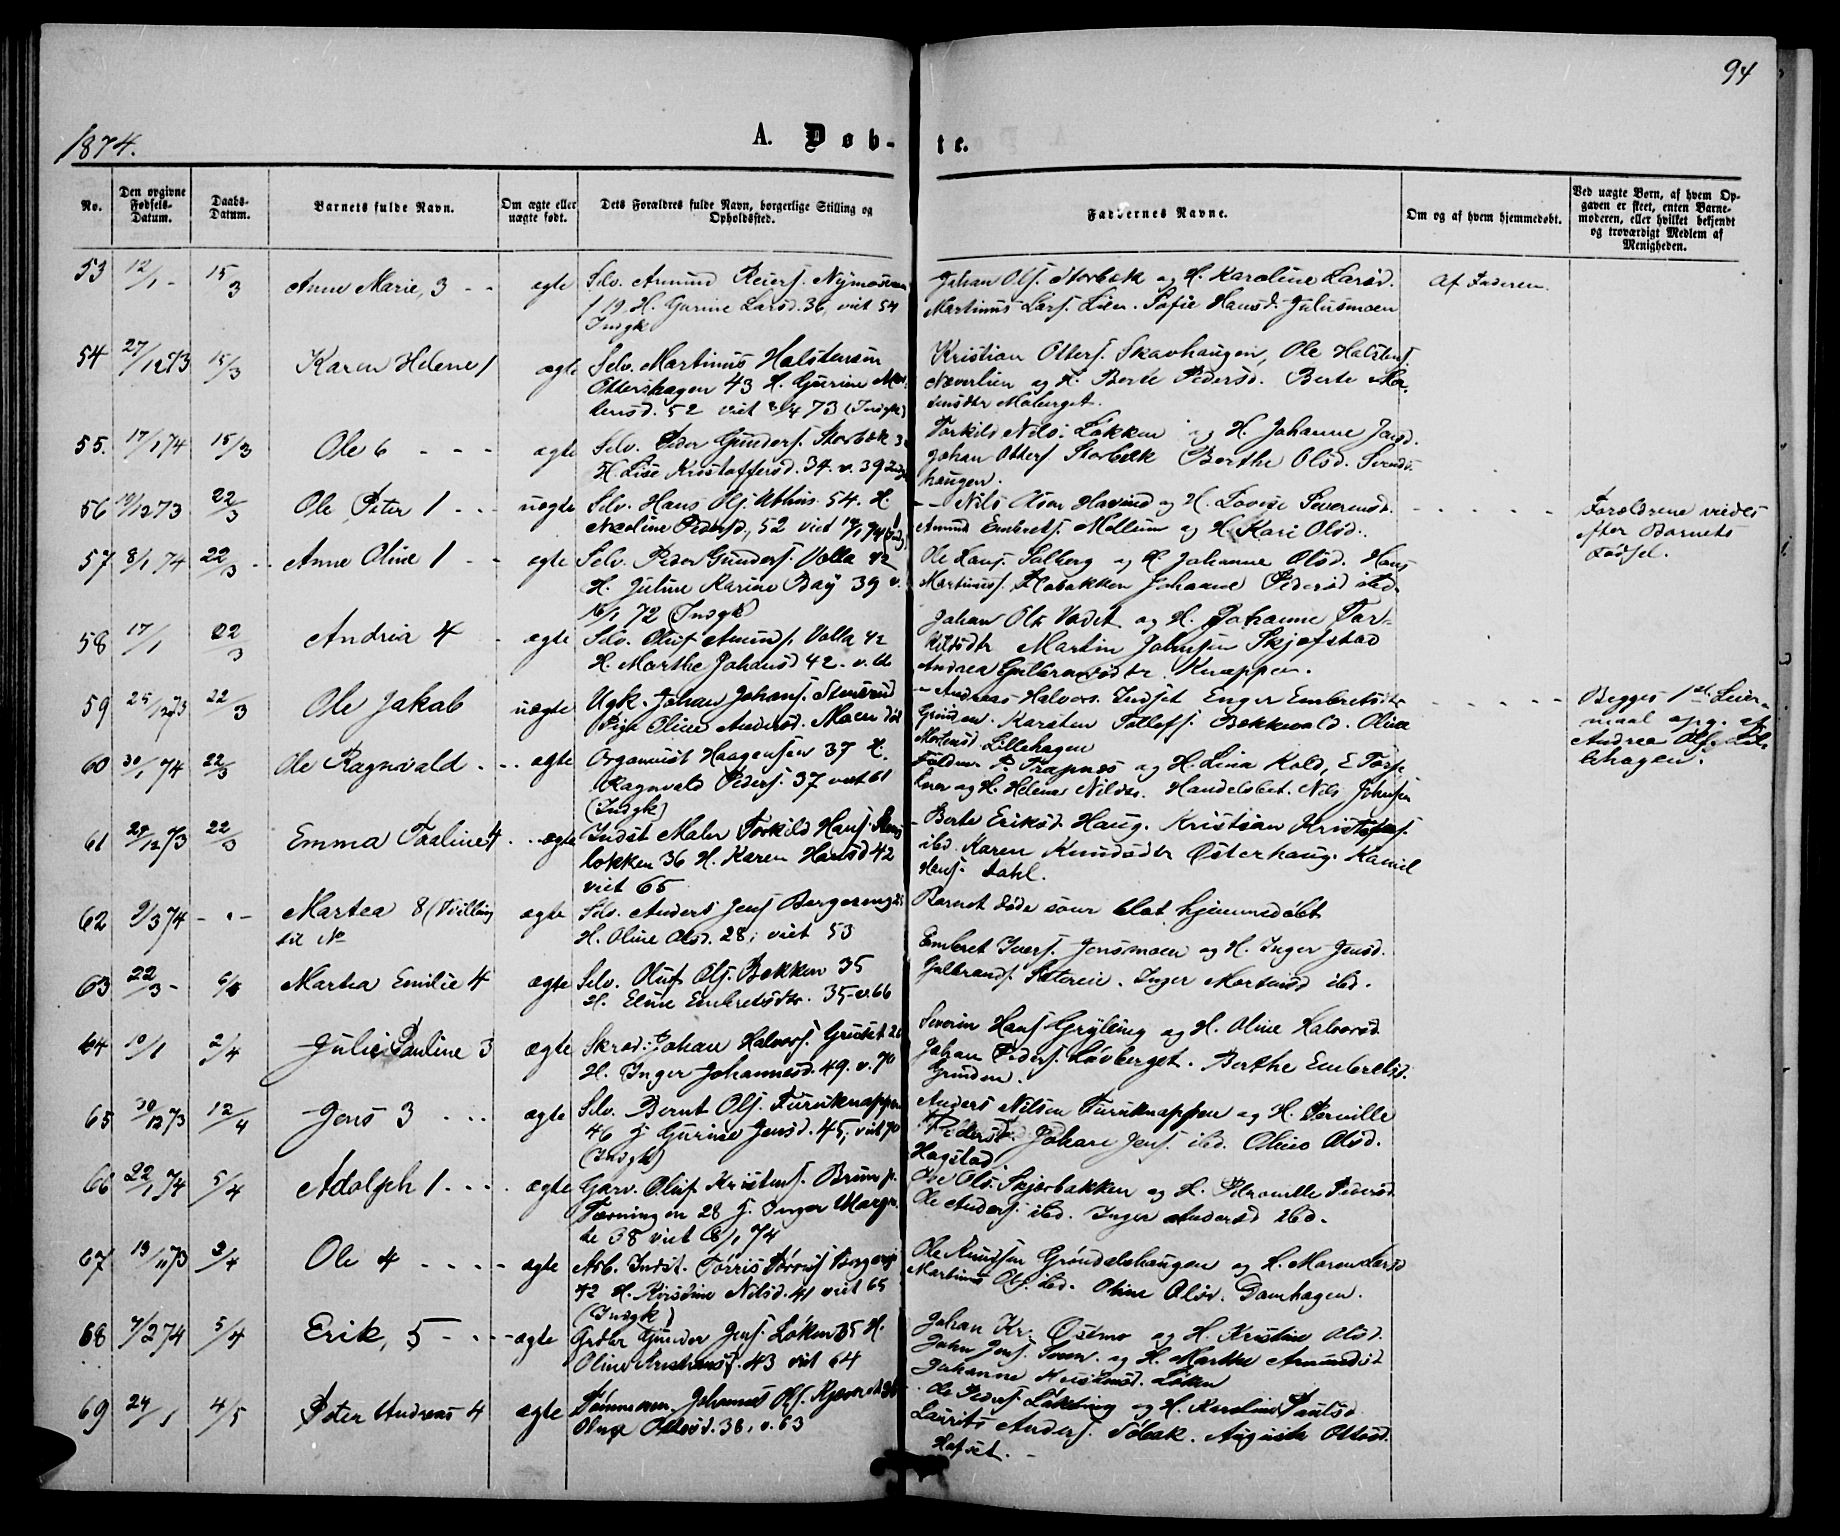 94
1874.
A. Døb-
te.
No.
Den opgivne Fødsels-Datum.
Daabs-Datum.
Barnets fulde Navn.
Om ægte eller uægte født.
Dets Forældres fulde Navn, borgerlige Stilling og Opholdssted.
Faddernes Navne.
Om og af hvem hjemmedøbt.
Ved uægte Børn, af hvem Opgaven er skeet, enten Barnemoderen, eller hvilket bekjendt og troværdigt Medlem af Menigheden.
53 12/1 - 15/3 Anne Marie, 3 - - ægte Selv. Amund Reiers.
H. Gurine Larsd. 36, viet 54
Indgk
Johan Ols. Storbæk og H. Karoline Larsd.
Martinus Lars. Lien. Sofie Hansd. Julusmoen
Af Faderen.
54 27/12 73 15/3 Karen Helene 1 ægte Selv. Martinus Halstensen
Ottershagen 43 H. Gurine Mor-
tensd. 52 viet 8/4 73 (Indgk)
Kristian Otters. Skavhaugen, Ole Halstens.
Næverlien og H. Berte Pedersd. Berte Mor-
tensdtr Moberget.
55. 17/1 74 15/3 Ole 6 - - - ægte Selv. Peder Gunders. Storbæk
H. Lise Kristoffersd. 34. v. 59
Torkild Nils. Løkken og H. Johanne Jonsd.
Johan Otters Storbæk Berthe Olsd. Svends-
haugen.
56 19/12 73 22/3 Ole Peter 1 - - - uægte Selv. Hans Ols. 54. H.
Nicoline Pedersd, 52 viet
- - Nils Olsen Havind og H. Lovise Severinsd.
Amund Embrets. Mellum og H. Kari Olsd.
Forældrene viedes
efter Barnets
Fødsel.
57 8/1 74 22/3 - - Anne Oline 1 - - ægte Selv. Peder Gunders. Volla 42
H. Juline Karine Bay 39 v.
16/1 72 (Indgk)
Ole Hans. Solberg og H. Johanne Olsd. Hans
Martinuss. Flobakken Johanne Pedersd ibd.
58 17/1 22/3 Andrea 4 - ægte Selv. Oluf Amunds. Volla 42
H. Marthe Johansd 42. v. 66
Johan Ols Vadet og H. Johanne Tor-
kildsdtr Martin Johnsen Skjefstad
Andrea Gulbrandsdtr Knappen.
59 25/12 73 22/3 Ole Jakob uægte Ugk. Johan Johans. Stensrud
Pige Oline Andersd. Moen
- Andreas Halvors. Indset Enger Embretsdtr
Grinden. Karsten Tollefs. Bekkevold. Oline
Mortensd Lillehagen
Begges 1ste Leier-
maal opg. af
Andrea Ols. Lil-
lehagen.
60 30/1 74 22/3 Ole Ragnvald - - - ægte Organist Haagensen 37 H.
Ragnvald Peders. 37 viet 61
(Indgk)
P. Trapnes og H. Lina Kold, E Torp
og H. Helene Nilsdtr. Handelsbet. Nils Johnsen
61 29/12 73 22/3 Emma Paaline 4 - - ægte Indst. Maler Torkild Hans.
løkken 36 H. Karen Hansd 42
viet 65
- Berte Eriksd. Haug. Kristian Kristofers.
ibd. Karen Knudsdtr Østerhaug. Kamil
Hans. Dahl.
62 9/3 74 - - - Martea 8 (Tvilling
til No
ægte Selv. Anders Jens. Borgereng 25
H. Oline Olsd. 28; viet 53
Barnet døde som blot hjemmedøbt
63 22/3 - 6/4 Martea Emilie 4 ægte Selv. Oluf Ols. Bakken 35
H. Eline Embretsdtr. 35 - v. 66
Embret Ivers. Jensmoen og H. Inger Jensd.
Gulbrand Sætereie. Inger Mortensd ibd.
64 10/1 2/4 Julie Pauline 3 ægte Skræd: Johan Halvors. Grindset 26
H. Inger Johannesd. 49. v. 70
Severin Hans Grylling og H. Oline Halvorsd.
Johan Peders. Løvberget. Berthe Embretsd.
Grinden.
65 30/12 73 12/4 Jens 3 - - - ægte Selv. Bernt Ols. Furuknappen
46 H. Gurine Jensd. 45, viet 70
(Indgk)
Anders Nilsen Furuknappen og H. Pernille
Pedersd. Johan Jens. ibd. Oline Olsd.
Hagstad
66 22/1 74 5/4 Adolph 1 - - - ægte Garv. Oluf Kristens. Brun p.
Terningen 28 H. Inger Margre-
te 38 viet 8/1 74
Ole Ols. Skjærbakken og H. Petronille Pedersd.
Ole Anders. ibd. Inger Andersd ibd.
67 13/11 73 3/4 Ole 4 - - - - ægte Arb. Indst. Tørris Tørris
42 H. Kirstine Nilsd. 41 viet 65
(Indgk)
Ole Knudsen Grøndalshaugen og H. Maren Larsd
Martinus Ols. ibd. Oline Olsd. Damhagen.
68 7/2 74 5/4 Erik, 5 - - - - ægte Gunder Jens. Løken 35 H.
Oline Kristians. 43 viet 64
Johan Kr. Østmo og H. Kristine Olsd.
John Jens. Sveen. og H. Marthe Amundsd
Johanne Kristensd. Løken
69 24/1 4/5 Peter Andreas 4 ægte Tømmerm. Johannes Ols.
Ottersd. 38, v. 63
Ole Peders. Løkting og H. Karoline Paulsd
Laurits Anders. Søbak. Auguste Ottersd.
Hafset.